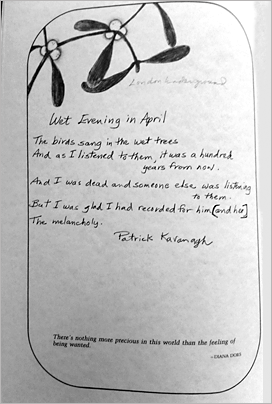 London Underground
Wet Evening in April
The birds sang in the wet trees
And as I listened to them, it was a hundred
years from now.
And I was dead and someone else was listening
to them.
But I was glad I had recorded for him [and her]
The melancholy.
Patrick Kavanagh
There's nothing more precious in this world than the feeling of
being wanted.
–DIANA DORS